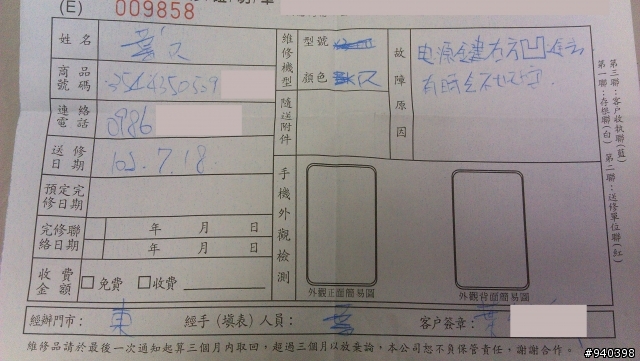 (E) 009858
姓名
商品號碼
連絡電話 0986
送修日期 102.7.18.
預定完修日期
完修聯絡日期 年 月 日
年 月 日
收費金額 □免費 □收費
維修機型 型號
顏色
隨送附件
故障原因 电源鍵右方凹
手機外觀檢測
外觀正面簡易圖 外觀背面簡易圖
經辦門市： 東 經手（填表）人員： 客戶簽章： 葉
維修品請於最後一次通知起算三個月內取回，超過三個月以放棄論，本公司恕不負保管責任，謝謝合作。
第一聯：存根聯(白) 第二聯：送修單位聯(紅)
第三聯：客戶收執聯(藍)
#940398